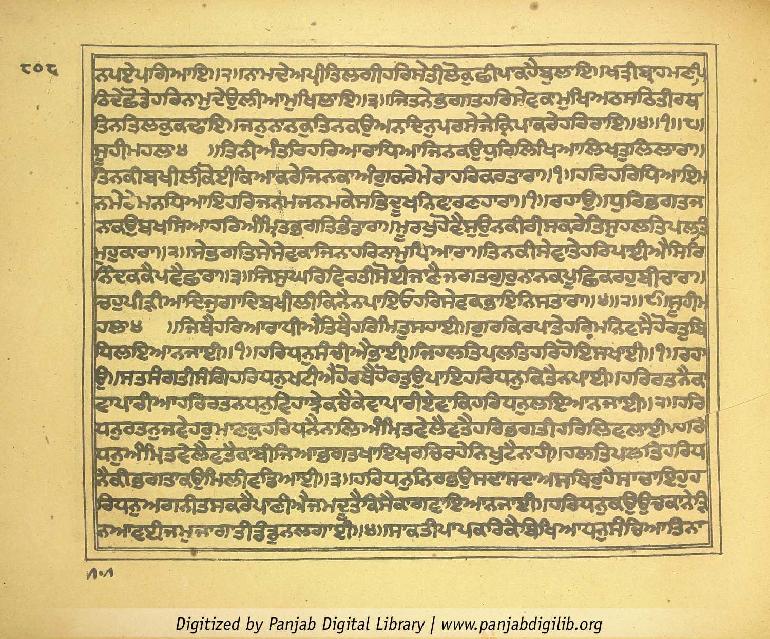 ੮੦੮
ਨਪਏਪਗਿਆਇ॥੨॥ਨਾਮਦੇਅਪ੍ਰੀਤਿਲਗੀਹਰਿਸੇਤੀਲੋਕੁਛੀਪਾਕਹੈਬੁਲਾਇ॥ਖਤ੍ਰੀਬ੍ਰਾਹਮਣਪਿ
ਠਿਦੇਛੋਡੇਹਰਿਨਾਮਦੇਉਲੀਆਮੁਖਿਲਾਇ॥੩॥ਜਿਤਨੇਭਗਤਹਰਿਸੇਵਕਾਮੁਖਿਅਠਸਠਿਤੀਰਥ
ਤਿਨਤਿਲਕੁਕਢਾਇ॥ਜਨੁਨਾਨਕੁਤਿਨਕਉਅਨਦਿਨੁਪਰਸੇਜੇਕ੍ਰਿਪਾਕਰੇਹਰਿਰਾਇ॥੪॥੧॥੮॥
ਸੂਹੀਮਹਲਾ੪ ॥ਤਿਨੀਅੰਤਰਿਹਰਿਆਰਾਧਿਆਜਿਨਕਉਧੁਰਿਲਿਖਿਆਲਿਖਤੁਲਿਲਾਰਾ॥
ਤਿਨਕੀਬਖੀਲੀਕੋਈਕਿਆਕਰੇਜਿਨਕਾਅੰਗੁਕਰੇਮੇਰਾਹਰਿਕਰਤਾਰਾ॥੧॥ਹਰਿਹਰਿਧਿਆਇਮ
ਨਮੇਰੇਮਨਧਿਆਇਹਰਿਜਨਮਜਨਮਕੇਸਭਿਦੂਖਨਿਵਾਰਣਹਾਰਾ॥੧॥ਰਹਾਉ॥ਧੁਰਿਭਗਤਜ
ਨਾਕਉਬਖਸਿਆਹਰਿਅੰਮ੍ਰਿਤਭਗਤਿਭੰਡਾਰਾ॥ਮੂਰਖੁਹੋਵੈਸੁਉਨਕੀਰੀਸਕਰੇਤਿਸੁਹਲਤਿਪਲਤਿ
ਮੁਹੁਕਾਰਾ॥੨॥ਸੇਭਗਤਸੇਸੇਵਕਾਜਿਨਾਹਰਿਨਾਮੁਪਿਆਰਾ॥ਤਿਨਕੀਸੇਵਾਤੇਹਰਿਪਾਈਐਸਿਰਿ
ਨਿੰਦਕਕੈਪਵੈਛਾਰਾ॥੩॥ਜਿਸੁਘਰਿਵਿਰਤੀਸੋਈਜਾਣੈਜਗਤਗੁਰਨਾਨਕਪੂਛਿਕਰਹੁਬੀਚਾਰਾ॥
ਚਹੁਪੀੜੀਆਦਿਜੁਗਾਦਿਬਖੀਲੀਕਿਨੈਨਪਾਇਓਹਰਿਸੇਵਕਭਾਇਨਿਸਤਾਰਾ॥੪॥੨॥੯॥ਸੂਹੀਮ
ਹਲਾ੪ ॥ਜਿਥੈਹਰਿਆਰਾਧੀਐਤਿਥੈਹਰਿਮਿਤੁਸਹਾਈ॥ਗੁਰਕਿਰਪਾਤੇਹਰਿਮਨਿਵਸੈਹੋਰਤੁਬਿ
ਧਿਲਇਆਨਜਾਈ॥੧॥ਹਰਿਧਨੁਸੰਚੀਐਭਾਈ॥ਜਿਹਲਤਿਪਲਤਿਹਰਿਹੋਇਸਖਾਈ॥੧॥ਰਹਾ
ਉ॥ਸਤਸੰਗਤੀਸੰਗਿਹਰਿਧਨੁਖਟੀਐਹੋਰਥੈਹੋਰਤੁਉਪਾਇਹਰਿਧਨੁਕਿਤੈਨਪਾਈ॥ਹਰਿਰਤਨੈਕਾ
ਵਾਪਾਰੀਆਹਰਿਰਤਨਧਨੁਵਿਹਾਝੇਕਚੈਕੇਵਾਪਾਰੀਏਵਾਕਿਹਰਿਧਨੁਲਇਆਨਜਾਈ॥੨॥ਹਰਿ
ਧਨੁਰਤਨੁਜਵੇਹਰੁਮਾਣਕੁਹਰਿਧਨੈਨਾਲਿਅੰਮ੍ਰਿਤਵੇਲੈਵਤੈਹਰਿਭਗਤੀਹਰਿਲਿਵਲਾਈ॥ਹਰਿ
ਧਨੁਅੰਮ੍ਰਿਤਵੇਲੈਵਤੈਕਾਬੀਜਿਆਭਗਤਖਾਇਖਰਚਿਰਹੇਨਿਖੁਟੈਨਾਹੀ॥ਹਲਤਿਪਲਤਿਹਰਿਧ
ਨੈਕੀਭਗਤਾਕਉਮਿਲੀਵਡਿਆਈ॥੩॥ਹਰਿਧਨੁਨਿਰਭਉਸਦਾਸਦਾਅਸਥਿਰੁਹੈਸਾਚਾਇਹੁਹ
ਰਿਧਨੁਅਗਨੀਤਸਕਰੈਪਾਣੀਐਜਮਦੂਤੈਕਿਸੈਕਾਗਵਾਇਆਨਜਾਈ॥ਹਰਿਧਨਕਉਉਚਕਾਨੇੜਿ
ਨਆਵਈਜਮੁਜਾਗਾਤੀਡੰਡੁਨਲਗਾਈ॥੪॥ਸਾਕਤੀਪਾਪਕਰਿਕੈਬਿਖਿਆਧਨੁਸੰਚਿਆਤਿਨਾ
Digitized by Panjab Digital Library | www.panjabdigilib.org